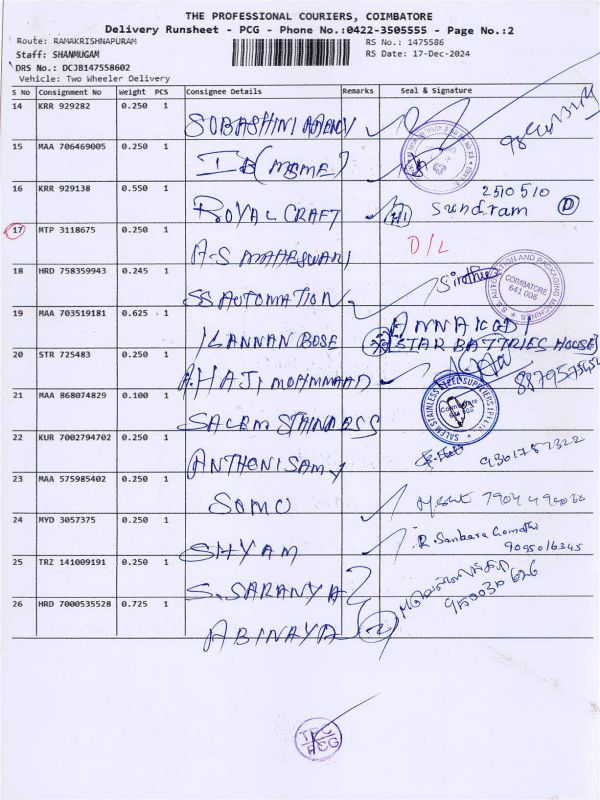 THE PROFESSIONAL COURIERS, COIMBATORE
Delivery Runsheet - PCG - Phone No.:0422-3505555 - Page No.:2
Route: RAMAKRISHNAPURAM
RS No.: 1475586
Staff: SHANMUGAM
RS Date: 17-Dec-2024
DRS No.: DCJB147558602
Vehicle: Two Wheeler Delivery
S No Consignment No Weight PCS Consignee Details Remarks Seal & Signature
14 KRR 929282 0.250 1 SUBASHINI AGENCY
15 MAA 706469005 0.250 1 IB (MSME)
16 KRR 929138 0.550 1 ROYAL CRAFT Sundram 2510510
17 MTP 3118675 0.250 1 A-S MAHESWARI D/L
18 HRD 758359943 0.245 1 SS AUTOMATION
S.S AUTOMATION AND PACKAGING MACHINES COIMBATORE 641 006
19 MAA 703519181 0.625 1 KANNAN BOSE ANNAKODI
(STAR BATTRIES HOUSE)
20 STR 725483 0.250 1 A. HAJI MOHMMAAD
21 MAA 868074829 0.100 1 SALEM STAINLESS
SALEM STAINLESS STEEL SUPPLIERS (P) LTD Coimbatore
22 KUR 7002794702 0.250 1 ANTHONISAMY 9361757322
23 MAA 575985402 0.250 1 SOMU 7904
24 MYD 3057375 0.250 1 SHYAM R. Sankara Gomathi
9095016345
25 TRZ 141009191 0.250 1 S. SARANYA
26 HRD 7000535528 0.725 1 ABINAYA
TPC
PCG